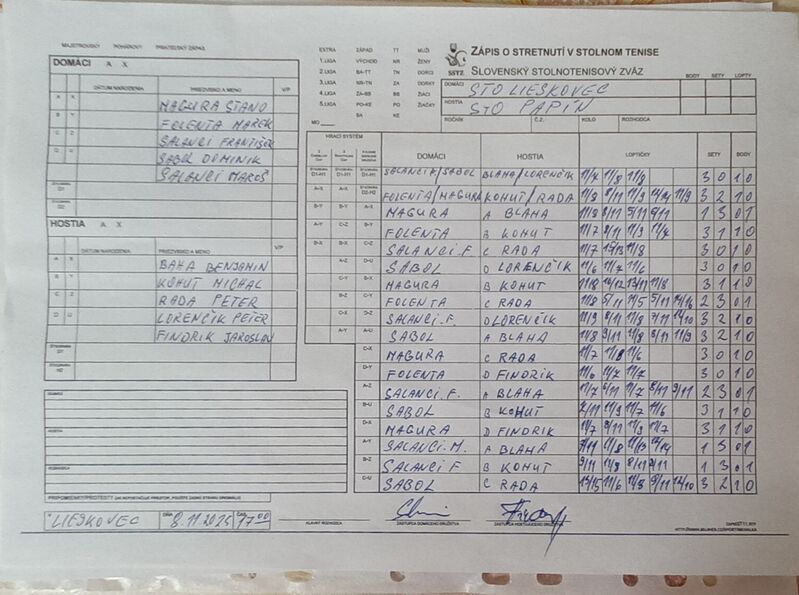 MAJSTROVSKÝ POHÁROVÝ PRIATEĽSKÝ ZÁPAS
DOMÁCI A X
DÁTUM NARODENIA PRIEZVISKO A MENO V/P
A X MAGURA STANO
B Y FOLENTA MAREK
C Z SALANCI FRANTIŠEK
D U SABOL DOMINIK
SALANCI MAROŠ
ŠTVORHRA D1
ŠTVORHRA D2
HOSTIA A X
DÁTUM NARODENIA PRIEZVISKO A MENO V/P
A X BAHA BENJAMIN
B Y KOHUT MICHAL
C Z RADA PETER
D U LORENČIK PETER
FINDRIK JAROSLAV
DOMÁCI
HOSTIA
ROZHODCA
PRIPOMIENKY/PROTESTY
LIESKOVEC DŇA 8.11.2025 ČAS 17 00
EXTRA ZÁPAD TT MUŽI
1.LIGA VÝCHOD NR ŽENY
2.LIGA BA-TT TN DORCI
3.LIGA NR-TN ZA DORKY
4.LIGA ZA-BB BB ŽIACI
5.LIGA PO-KE PO ŽIAČKY
BA KE
MO
SSTZ
ZÁPIS O STRETNUTÍ V STOLNOM TENISE
SLOVENSKÝ STOLNOTENISOVÝ ZVÄZ
BODY SETY LOPTY
DOMÁCI STO LIESKOVEC
HOSTIA STO PAPÍN
ROČNÍK Č.Z. KOLO ROZHODCA
HRACÍ SYSTÉM
DOMÁCI HOSTIA LOPTIČKY SETY BODY
SALANCIK/SABOL BLAHA/LORENČIK 11/7 11/8 11/9 3 0 1 0
FOLENTA/MAGURA KOHUT/RADA 11/8 8/11 11/9 11/9 3 2 1 0
B-Y B-Y A-X MAGURA A BLAHA 11/8 8/11 5/11 9/11 1 3 0 1
A-Y C-Z B-Y FOLENTA B KOHUT 11/7 11/3 11/4 3 1 1 0
B-X B-X C-Z SALANCI.F. C RADA 11/7 11/8 3 0 1 0
A-Z D-U SABOL D LORENČIK 11/6 11/7 11/6 3 0 1 0
C-Y B-X MAGURA B KOHUT 11/8 3 1 1 0
B-Z C-Y FOLENTA C RADA 11/8 5/11 11/5 5/11 2 3 0 1
C-X D-Z SALANCI.F. D LORENČIK 3 2 1 0
A-Y A-U SABOL A BLAHA 11/8 9/11 11/8 11/9 3 2 1 0
C-X MAGURA C RADA 11/7 11/8 11/6 3 0 1 0
D-Y FOLENTA D FINDRIK 11/6 11/7 11/7 3 0 1 0
A-Z SALANCI.F. A BLAHA 11/7 6/11 11/7 8/11 9/11 2 3 0 1
B-U SABOL B KOHUT 11/9 11/7 11/6 3 1 1 0
D-X MAGURA D FINDRIK 11/7 8/11 11/9 11/7 3 1 1 0
A-Y SALANCI.M. A BLAHA 7/11 1 3 0 1
B-Z SALANCI F B KOHUT 9/11 11/8 8/11 9/11 1 3 0 1
C-U SABOL C RADA 13/15 11/6 11/8 9/11 3 2 1 0
HLAVNÝ ROZHODCA ZÁSTUPCA DOMÁCEHO DRUŽSTVA ZÁSTUPCA HOSŤUJÚCEHO DRUŽSTVA